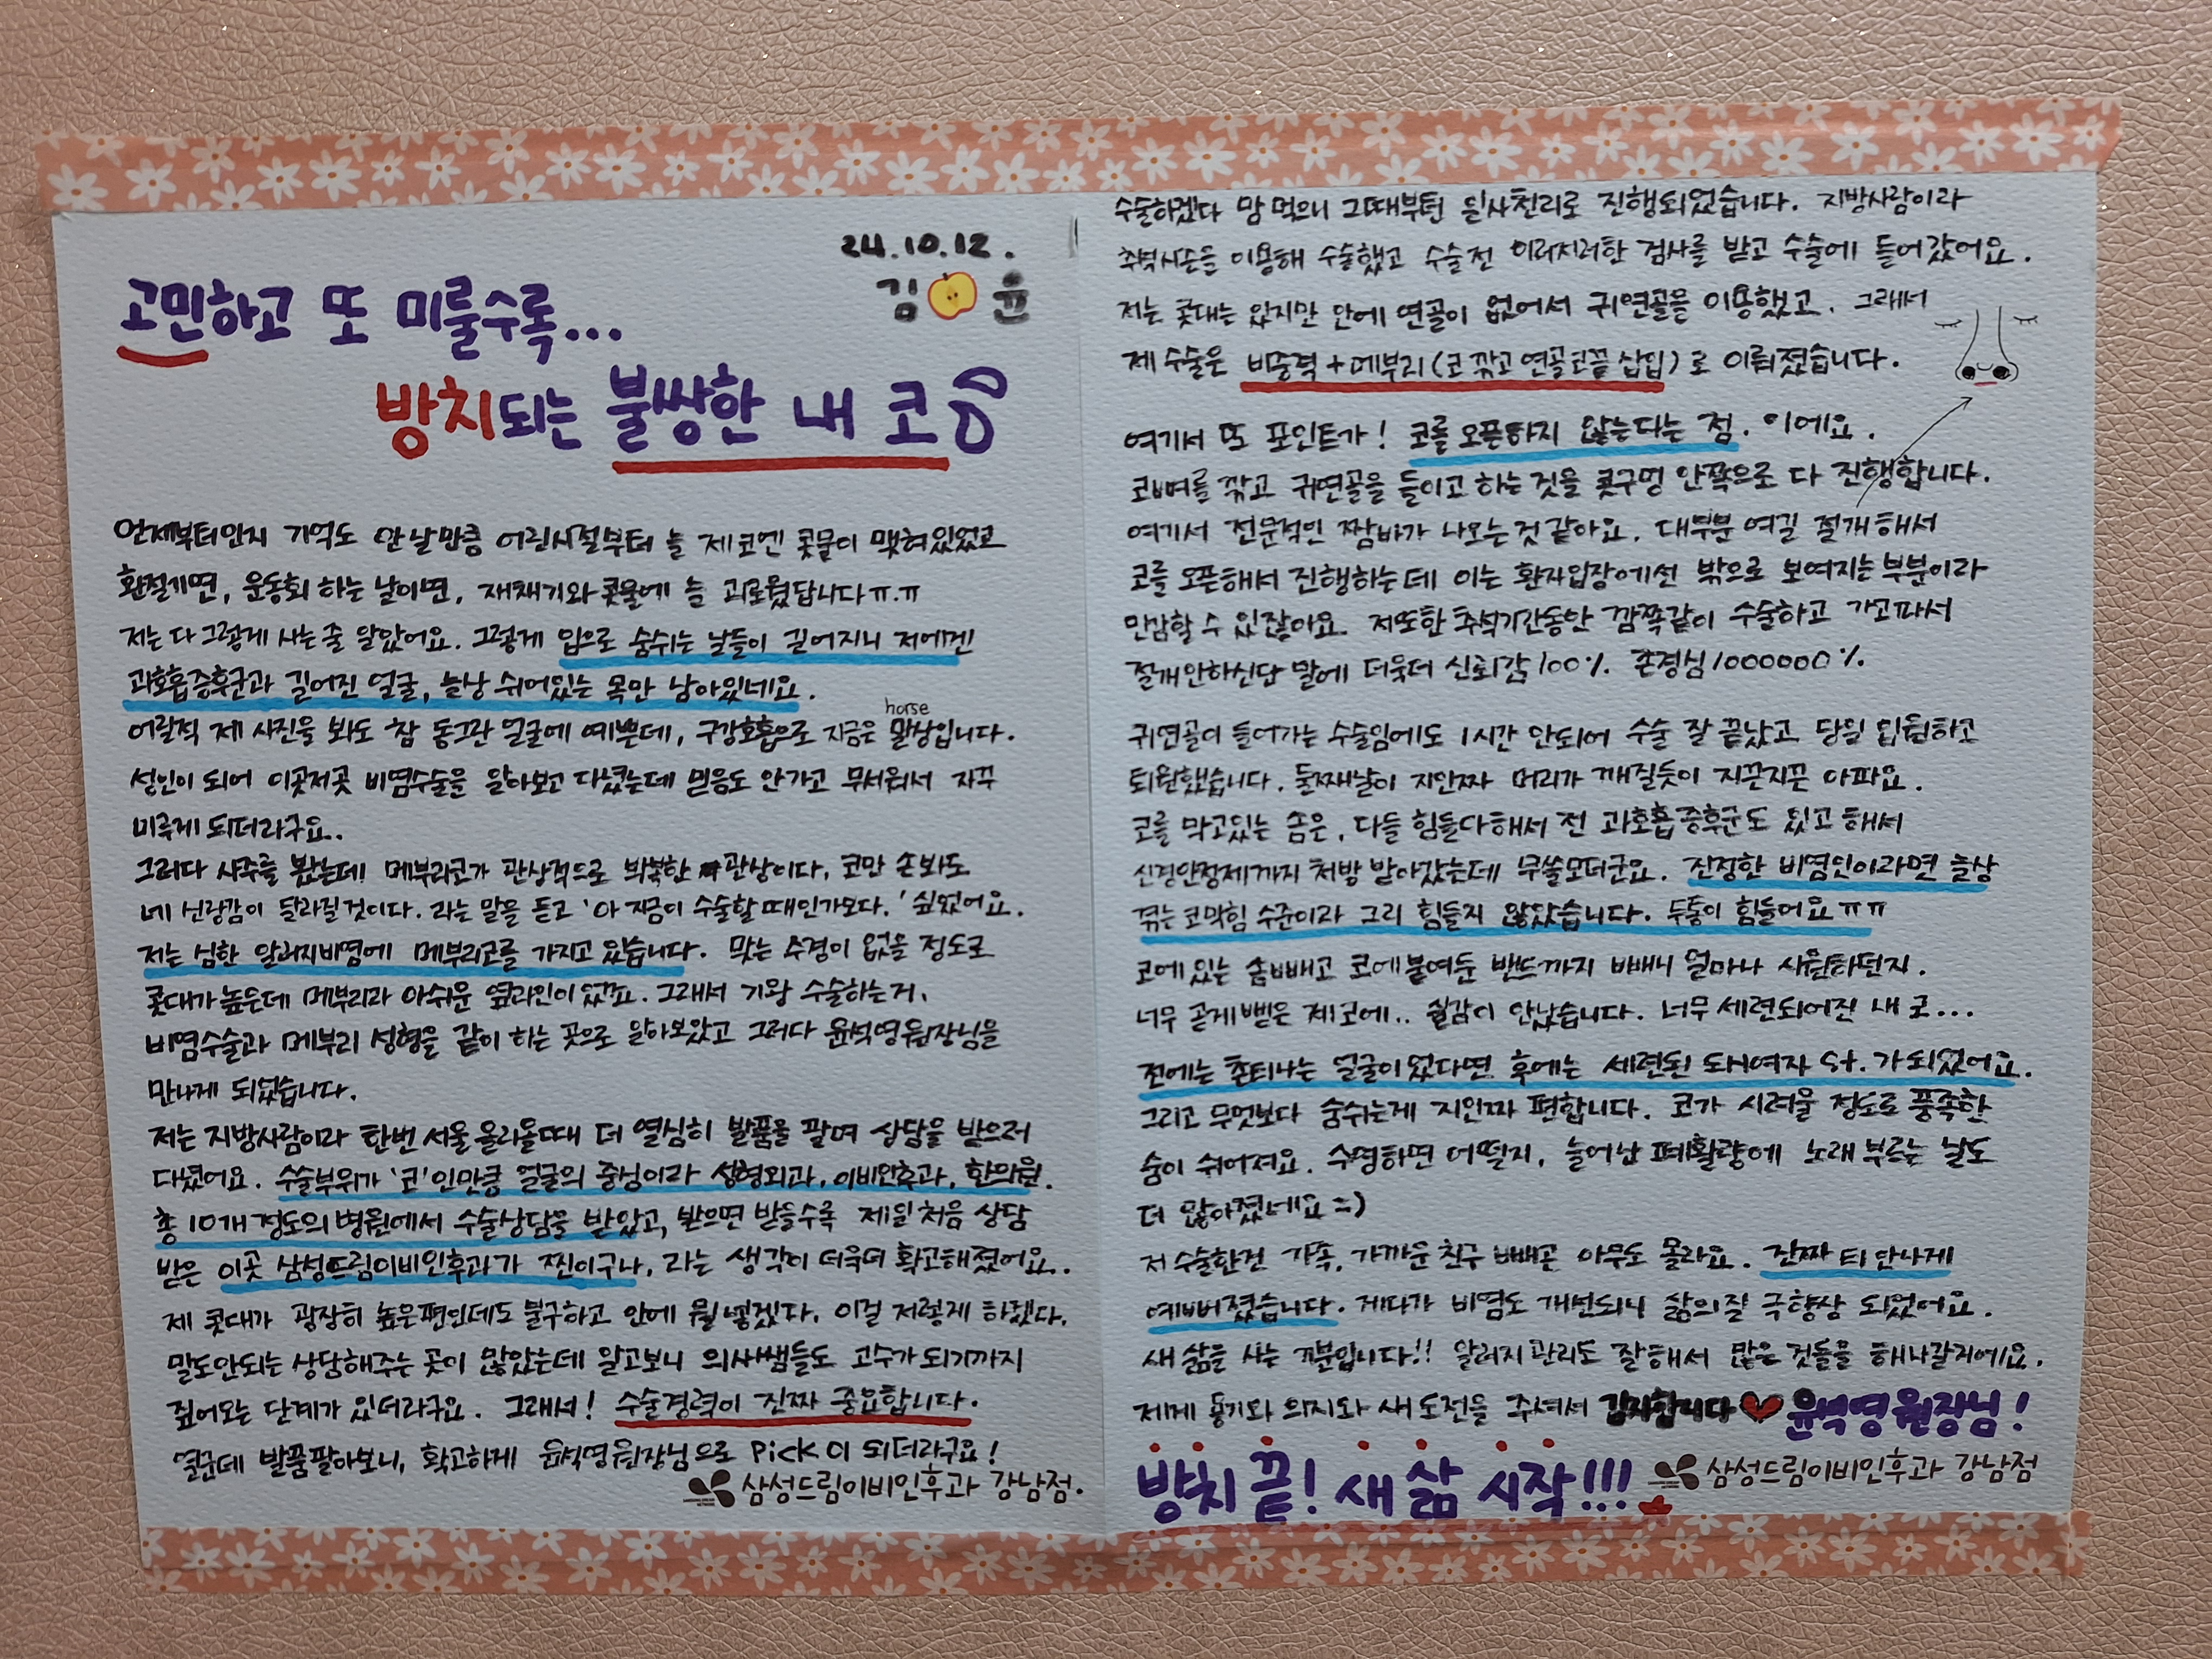 24.10.12.
김 윤
고민하고 또 미룰수록...
방치되는 불쌍한 내 코
언제부터인지 기억도 안 날만큼 어린시절부터 늘 제 코엔 콧물이 맺혀있었고
환절기면, 운동회 하는 날이면, 재채기와 콧물에 늘 괴로웠답니다ㅠ.ㅠ
저는 다 그렇게 사는 줄 알았어요. 그렇게 입으로 숨쉬는 날들이 길어지니 저에겐
과호흡증후군과 길어진 얼굴, 늘상 쉬어있는 목만 남아있네요.
horse
어릴적 제 사진을 봐도 참 동그란 얼굴에 예쁜데, 구강호흡으로 지금은 말상입니다.
성인이 되어 이곳저곳 비염수술을 알아보고 다녔는데 믿음도 안가고 무서워서 자꾸
미루게 되더라구요..
그러다 사주를 봤는데! 메부리코가 관상적으로 박복한 관상이다, 코만 손봐도
네 신랑감이 달라질것이다. 라는 말을 듣고 '아 지금이 수술할때인가보다.' 싶었어요.
저는 심한 알러지비염에 메부리코를 가지고 있습니다. 맞는 수경이 없을 정도로
콧대가 높은데 메부리라 아쉬운 옆라인이 있죠. 그래서 기왕 수술하는거,
비염수술과 메부리 성형을 같이 하는 곳으로 알아보았고 그러다 윤석영원장님을
만나게 되었습니다.
저는 지방사람이라 한번 서울 올라올때 더 열심히 발품을 팔며 상담을 받으러
다녔어요. 수술부위가 '코'인만큼 얼굴의 중심이라 성형외과, 이비인후과, 한의원.
총 10개 정도의 병원에서 수술상담을 받았고, 받으면 받을수록 제일 처음 상담
받은 이곳 삼성드림이비인후과가 찐이구나, 라는 생각이 더욱더 확고해졌어요.
제 콧대가 굉장히 높은편인데도 불구하고 안에 뭘 넣겠다, 이걸 저렇게 하겠다,
말도안되는 상담해주는 곳이 많았는데 알고보니 의사쌤들도 고수가 되기까지
짚어오는 단계가 있더라구요. 그래서! 수술경력이 진짜 중요합니다.
열군데 발품팔아보니, 확고하게 윤석영원장님으로 pick이 되더라구요!
삼성드림이비인후과 강남점.
수술하겠다 맘 먹으니 그때부턴 일사천리로 진행되었습니다. 지방사람이라
추석시즌을 이용해 수술했고 수술전 이러저러한 검사를 받고 수술에 들어갔어요.
저는 콧대는 있지만 안에 연골이 없어서 귀연골을 이용했고, 그래서
제 수술은 비중격+메부리(코 깎고 연골코끝 삽입)로 이뤄졌습니다.
여기서 또 포인트가! 코를 오픈하지 않는다는 점. 이에요.
코뼈를 깎고 귀연골을 들이고 하는 것을 콧구멍 안쪽으로 다 진행합니다.
여기서 전문적인 짬바가 나오는것 같아요. 대부분 여길 절개해서
코를 오픈해서 진행하는데 이는 환자입장에선 밖으로 보여지는 부분이라
민감할 수 있잖아요. 저또한 추석기간동안 깜쪽같이 수술하고 가고파서
절개안하신단 말에 더욱더 신뢰감 100%. 존경심 1000000%.
귀연골이 들어가는 수술임에도 1시간 안되어 수술 잘 끝났고 당일 입원하고
퇴원했습니다. 둘째날이 지인짜 머리가 깨질듯이 지끈지끈 아파요.
코를 막고있는 솜은, 다들 힘들다해서 전 과호흡증후군도 있고 해서
신경안정제까지 처방 받아갔는데 무쓸모더군요. 진정한 비염인이라면 늘상
겪는 코막힘 수준이라 그리 힘들지 않았습니다. 두통이 힘들어요ㅠㅠ
코에 있는 솜빼고 코에붙여둔 밴드까지 빼니 얼마나 시원하던지.
너무 곧게뻗은 제코에.. 실감이 안났습니다. 너무 세련되어진 내 코...
전에는 촌티나는 얼굴이었다면 후에는 세련된 도시여자 st.가되었어요.
그리고 무엇보다 숨쉬는게 지인짜 편합니다. 코가 시려울 정도로 풍족한
숨이 쉬어져요. 수영하면 어떨지, 늘어난 폐활량에 노래 부르는 날도
더 많아졌네요 =)
저 수술한건 가족, 가까운 친구 빼곤 아무도 몰라요. 진짜 티 안나게
예뻐졌습니다. 게다가 비염도 개선되니 삶의질 극향상 되었어요.
새 삶을 사는 기분입니다!! 알러지관리도 잘해서 많은 것들을 해나갈거에요.
제게 용기와 의지와 새 도전을 주셔서 감사합니다 윤석영원장님!
방치 끝! 새 삶 시작!!!
삼성드림이비인후과 강남점